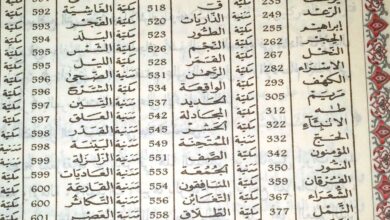 235 مكية ق 518 مكية الغاشية 592 مكية
الرعد 249 مدنية الذاريات 520 مكية الفجر 593 مكية
إبراهيم 255 مكية الطور 523 مكية البلد 594 مكية
الحجر 262 مكية النجم 526 مكية الشمس 595 مكية
النحل 267 مكية القمر 528 مكية الليل 595 مكية
الإسراء 282 مكية الرحمن 531 مدنية الضحى 596 مكية
الكهف 293 مكية الواقعة 534 مكية الشرح 596 مكية
مريم 305 مكية الحديد 537 مدنية التين 597 مكية
طه 312 مكية المجادلة 542 مدنية العلق 597 مكية
الأنبياء 322 مكية الحشر 545 مدنية القدر 598 مكية
الحج 332 مدنية الممتحنة 549 مدنية البينة 598 مدنية
المؤمنون 342 مكية الصف 551 مدنية الزلزلة 599 مدنية
النور 350 مدنية الجمعة 553 مدنية العاديات 599 مكية
الفرقان 359 مكية المنافقون 554 مدنية القارعة 600 مكية
الشعراء 367 مكية التغابن 556 مدنية التكاثر 600 مكية
النمل 377 مكية الطلاق 558 مدنية العصر 601